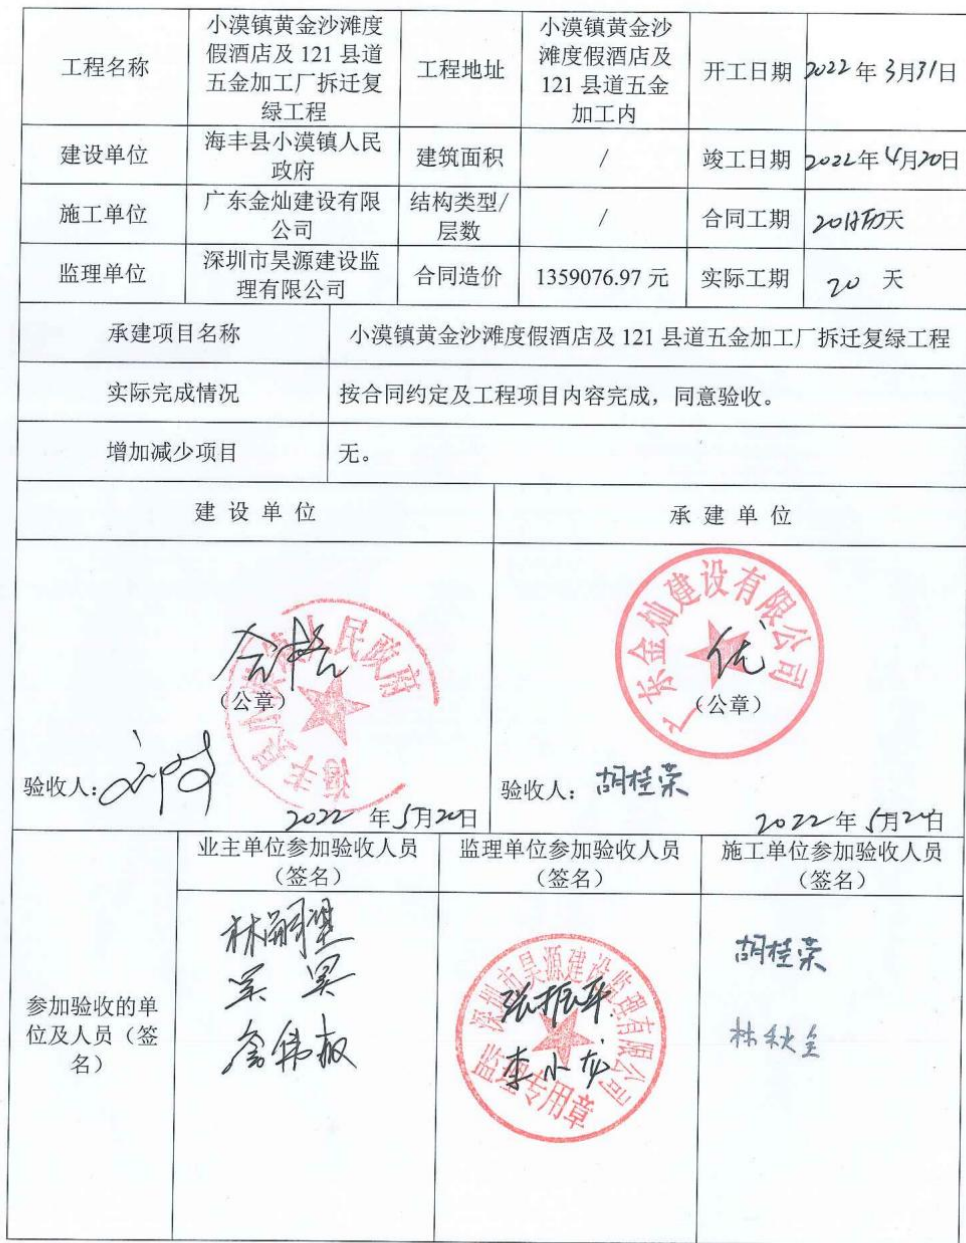 工程名称
小漠镇黄金沙滩度
假酒店及 121 县道
五金加工厂拆迁复
绿工程
工程地址
小漠镇黄金沙
滩度假酒店及
121 县道五金
加工内
开工日期
2022 年 3月31日
建设单位
海丰县小漠镇人民
政府
建筑面积
/
竣工日期
2022年4月20日
施工单位
广东金灿建设有限
公司
结构类型/
层数
/
合同工期
20日历天
监理单位
深圳市昊源建设监
理有限公司
合同造价
1359076.97 元
实际工期
20 天
承建项目名称
小漠镇黄金沙滩度假酒店及 121 县道五金加工厂拆迁复绿工程
实际完成情况
按合同约定及工程项目内容完成，同意验收。
增加减少项目
无。
建 设 单 位
承 建 单 位
海丰县小漠镇人民政府
合格
（公章）
验收人：
2022 年5月20日
广东金灿建设有限公司
优
（公章）
验收人： 胡桂荣
2022年5月20日
参加验收的单
位及人员（签
名）
业主单位参加验收人员
（签名）
监理单位参加验收人员
（签名）
深圳市昊源建设监理有限公司
监理专用章
张振平
李小龙
施工单位参加验收人员
（签名）
胡桂荣
林秋全